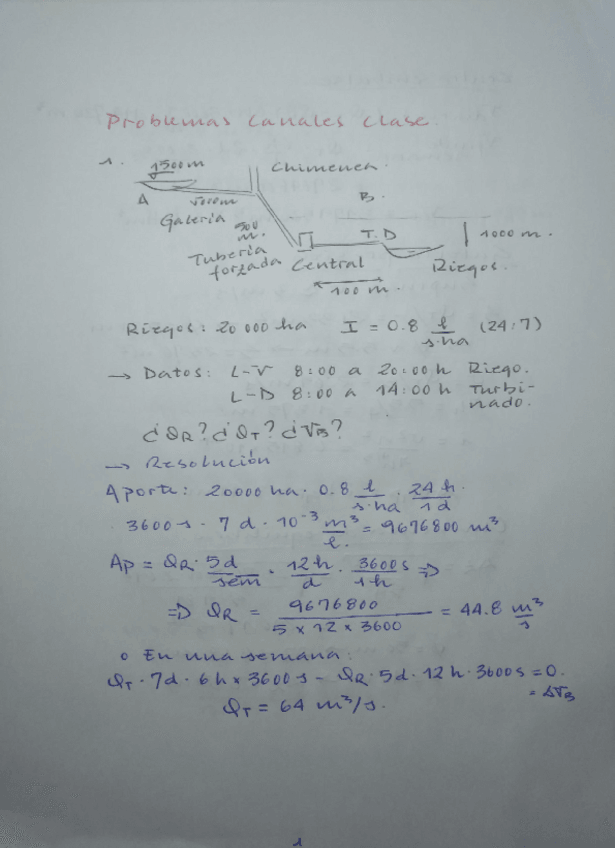 Problemas canales clase.
1. 1500 m
Chimenea.
A 5000 m B.
Galería
500 m. T.D 1000 m.
Tubería forzada Central Riegos.
100 m.
Riegos: 20 000 ha I = 0.8 l/s·ha (24:7)
→ Datos: L-V 8:00 a 20:00 h Riego.
L-D 8:00 a 14:00 h Turbi-
nado.
¿QR? ¿QT? ¿VB?
→ Resolución
Aporte: 20000 ha · 0.8 l/s·ha · 24 h/1d ·
· 3600 s · 7 d · 10⁻³ m³/l. = 9676800 m³
Ap = QR · 5d/sem · 12h/d · 3600s/1h ⇒
⇒ QR = 9676800 / 5 x 12 x 3600 = 44.8 m³/s
o En una semana:
QT · 7d · 6h x 3600 s - QR · 5d · 12h · 3600s = 0.
= ΔVB
QT = 64 m³/s.
1